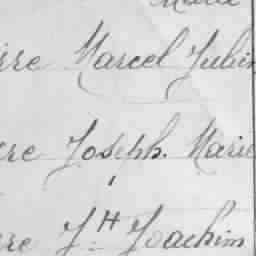 Marie
rre Marcel Julien
rre Joseph. Marie
rre J.H Joachim